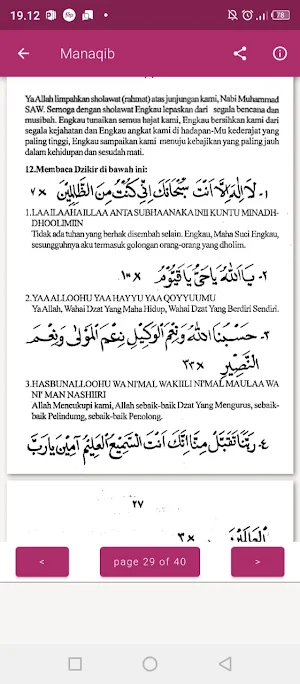 19.12
78
Manaqib
Ya Allah limpahkan sholawat (rahmat) atas junjungan kami, Nabi Muhammad
SAW. Semoga dengan sholawat Engkau lepaskan dari segala bencana dan
musibah. Engkau tunaikan semua hajat kami, Engkau bersihkan kami dari
segala kejahatan dan Engkau angkat kami di hadapan-Mu kederajat yang
paling tinggi, Engkau sampaikan kami menuju kebajikan yang paling jauh
dalam kehidupan dan sesudah mati.
12.Membaca Dzikir di bawah ini:
١- لَا إِلٰهَ إِلَّا أَنْتَ سُبْحَانَكَ إِنِّي كُنْتُ مِنَ الظَّالِمِيْنَ × ٧
1.LAA ILAAHA ILLAA ANTA SUBHAANAKA INII KUNTU MINADH-
DHOOLIMIIN
Tidak ada tuhan yang berhak disembah selain. Engkau, Maha Suci Engkau,
sesungguhnya aku termasuk golongan orang-orang yang dholim.
٢- يَا اَللهُ يَا حَيُّ يَا قَيُّوْمُ ×
2.YAA ALLOOHU YAA HAYYU YAA QOYYUUMU
Ya Allah, Wahai Dzat Yang Maha Hidup, Wahai Dzat Yang Berdiri Sendiri.
٣- حَسْبُنَا اللهُ وَنِعْمَ الْوَكِيْلُ نِعْمَ الْمَوْلٰى وَنِعْمَ
النَّصِيْرُ × ٣٣
3.HASBUNALLOOHU WA NI'MAL WAKIILI NI'MAL MAULAA WA
NI' MAN NASHIIRI
Allah Mencukupi kami, Allah sebaik-baik Dzat Yang Mengurus, sebaik-
baik Pelindung, sebaik-baik Penolong.
٤- رَبَّنَا تَقَبَّلْ مِنَّا إِنَّكَ أَنْتَ السَّمِيْعُ الْعَلِيْمُ آمِيْنَ يَا رَبَّ
٢٧
الْعَالَمِيْنَ × ٣
<
page 29 of 40
>